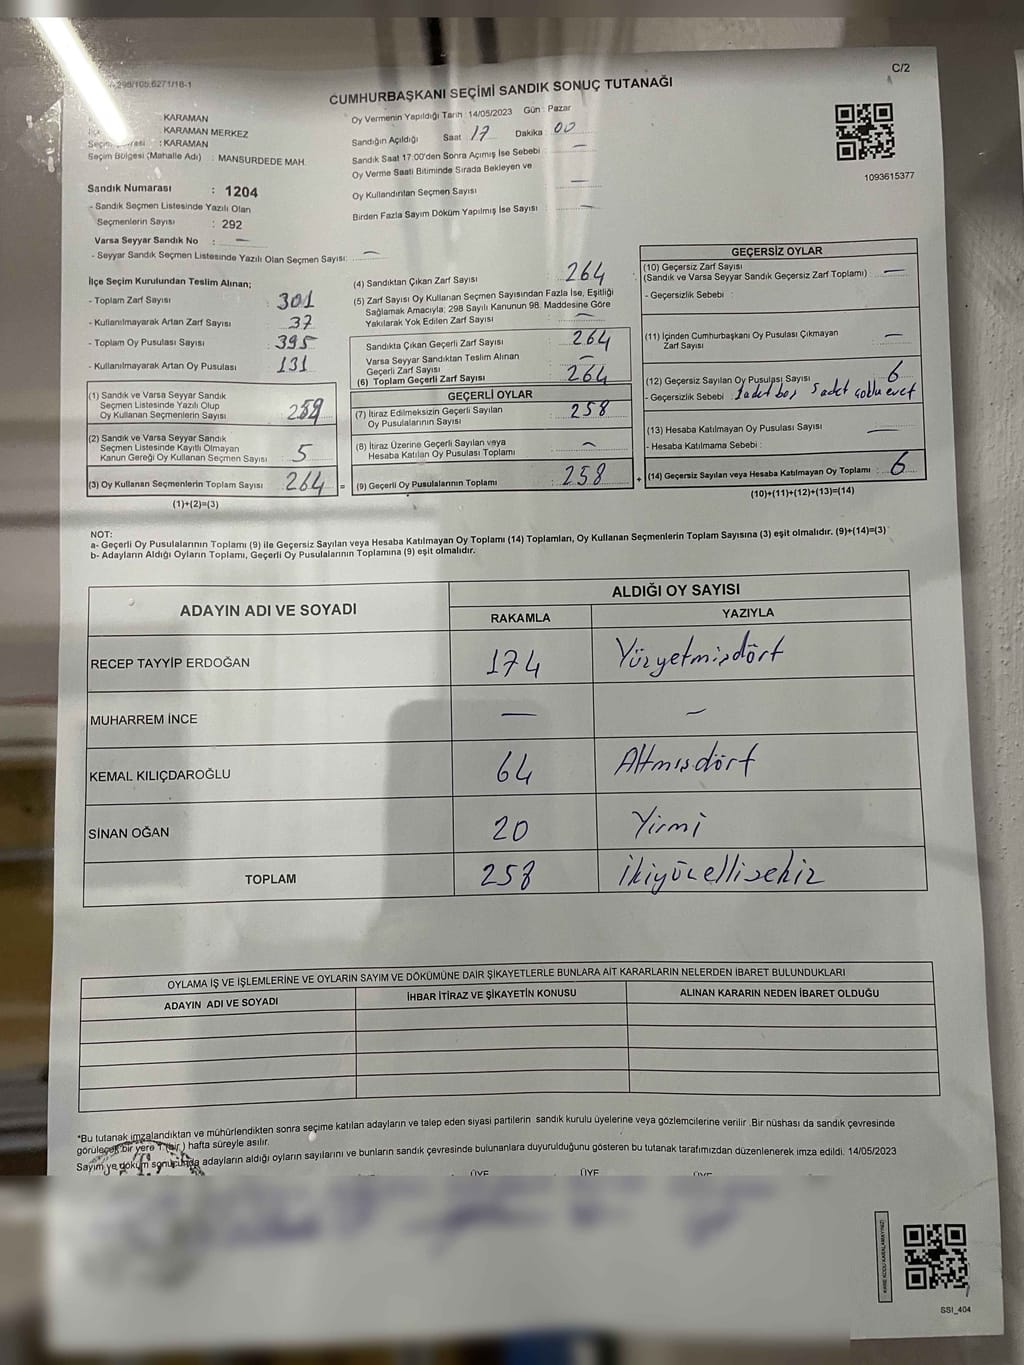 298/105.6271/18-1
C/2
CUMHURBAŞKANI SEÇİMİ SANDIK SONUÇ TUTANAĞI
: KARAMAN
: KARAMAN MERKEZ
: KARAMAN
Seçim Bölgesi (Mahalle Adı) : MANSURDEDE MAH.
Sandık Numarası : 1204
- Sandık Seçmen Listesinde Yazılı Olan
Seçmenlerin Sayısı : 292
Varsa Seyyar Sandık No : —
- Seyyar Sandık Seçmen Listesinde Yazılı Olan Seçmen Sayısı: —
Oy Vermenin Yapıldığı Tarih : 14/05/2023 Gün : Pazar
Sandığın Açıldığı Saat 17 Dakika 00
Sandık Saat 17:00'den Sonra Açımış İse Sebebi : —
Oy Verme Saati Bitiminde Sırada Bekleyen ve
Oy Kullandırılan Seçmen Sayısı : —
Birden Fazla Sayım Döküm Yapılmış İse Sayısı : —
1093615377
İlçe Seçim Kurulundan Teslim Alınan;
- Toplam Zarf Sayısı : 301
- Kullanılmayarak Artan Zarf Sayısı : 37
- Toplam Oy Pusulası Sayısı : 395
- Kullanılmayarak Artan Oy Pusulası : 131
(1) Sandık ve Varsa Seyyar Sandık
Seçmen Listesinde Yazılı Olup
Oy Kullanan Seçmenlerin Sayısı : 259
(2) Sandık ve Varsa Seyyar Sandık
Seçmen Listesinde Kayıtlı Olmayan
Kanun Gereği Oy Kullanan Seçmen Sayısı : 5
(3) Oy Kullanan Seçmenlerin Toplam Sayısı : 264 =
(1)+(2)=(3)
(4) Sandıktan Çıkan Zarf Sayısı : 264
(5) Zarf Sayısı Oy Kullanan Seçmen Sayısından Fazla İse, Eşitliği
Sağlamak Amacıyla; 298 Sayılı Kanunun 98. Maddesine Göre
Yakılarak Yok Edilen Zarf Sayısı : —
Sandıkta Çıkan Geçerli Zarf Sayısı : 264
Varsa Seyyar Sandıktan Teslim Alınan
Geçerli Zarf Sayısı : —
(6) Toplam Geçerli Zarf Sayısı : 264
GEÇERLİ OYLAR
(7) İtiraz Edilmeksizin Geçerli Sayılan
Oy Pusulalarının Sayısı : 258
(8) İtiraz Üzerine Geçerli Sayılan veya
Hesaba Katılan Oy Pusulası Toplamı : —
(9) Geçerli Oy Pusulalarının Toplamı : 258 +
GEÇERSİZ OYLAR
(10) Geçersiz Zarf Sayısı
(Sandık ve Varsa Seyyar Sandık Geçersiz Zarf Toplamı) : —
- Geçersizlik Sebebi :
(11) İçinden Cumhurbaşkanı Oy Pusulası Çıkmayan
Zarf Sayısı : —
(12) Geçersiz Sayılan Oy Pusulası Sayısı : 6
- Geçersizlik Sebebi : 1 adet boş 5 adet çoklu evet
(13) Hesaba Katılmayan Oy Pusulası Sayısı : —
- Hesaba Katılmama Sebebi :
(14) Geçersiz Sayılan veya Hesaba Katılmayan Oy Toplamı : 6
(10)+(11)+(12)+(13)=(14)
NOT:
a- Geçerli Oy Pusulalarının Toplamı (9) ile Geçersiz Sayılan veya Hesaba Katılmayan Oy Toplamı (14) Toplamları, Oy Kullanan Seçmenlerin Toplam Sayısına (3) eşit olmalıdır. (9)+(14)=(3)
b- Adayların Aldığı Oyların Toplamı, Geçerli Oy Pusulalarının Toplamına (9) eşit olmalıdır.
ADAYIN ADI VE SOYADI
ALDIĞI OY SAYISI
RAKAMLA YAZIYLA
RECEP TAYYİP ERDOĞAN 174 Yüzyetmişdört
MUHARREM İNCE — —
KEMAL KILIÇDAROĞLU 64 Altmışdört
SİNAN OĞAN 20 Yirmi
TOPLAM 258 İkiyüzellisekiz
OYLAMA İŞ VE İŞLEMLERİNE VE OYLARIN SAYIM VE DÖKÜMÜNE DAİR ŞİKAYETLERLE BUNLARA AİT KARARLARIN NELERDEN İBARET BULUNDUKLARI
ADAYIN ADI VE SOYADI İHBAR İTİRAZ VE ŞİKAYETİN KONUSU ALINAN KARARIN NEDEN İBARET OLDUĞU
*Bu tutanak imzalandıktan ve mühürlendikten sonra seçime katılan adayların ve talep eden siyasi partilerin sandık kurulu üyelerine veya gözlemcilerine verilir. Bir nüshası da sandık çevresinde
görülecek bir yere 1 (bir) hafta süreyle asılır.
Sayım ve döküm sonucunda adayların aldığı oyların sayılarını ve bunların sandık çevresinde bulunanlara duyurulduğunu gösteren bu tutanak tarafımızdan düzenlenerek imza edildi. 14/05/2023
ÜYE ÜYE ÜYE
SSİ_404